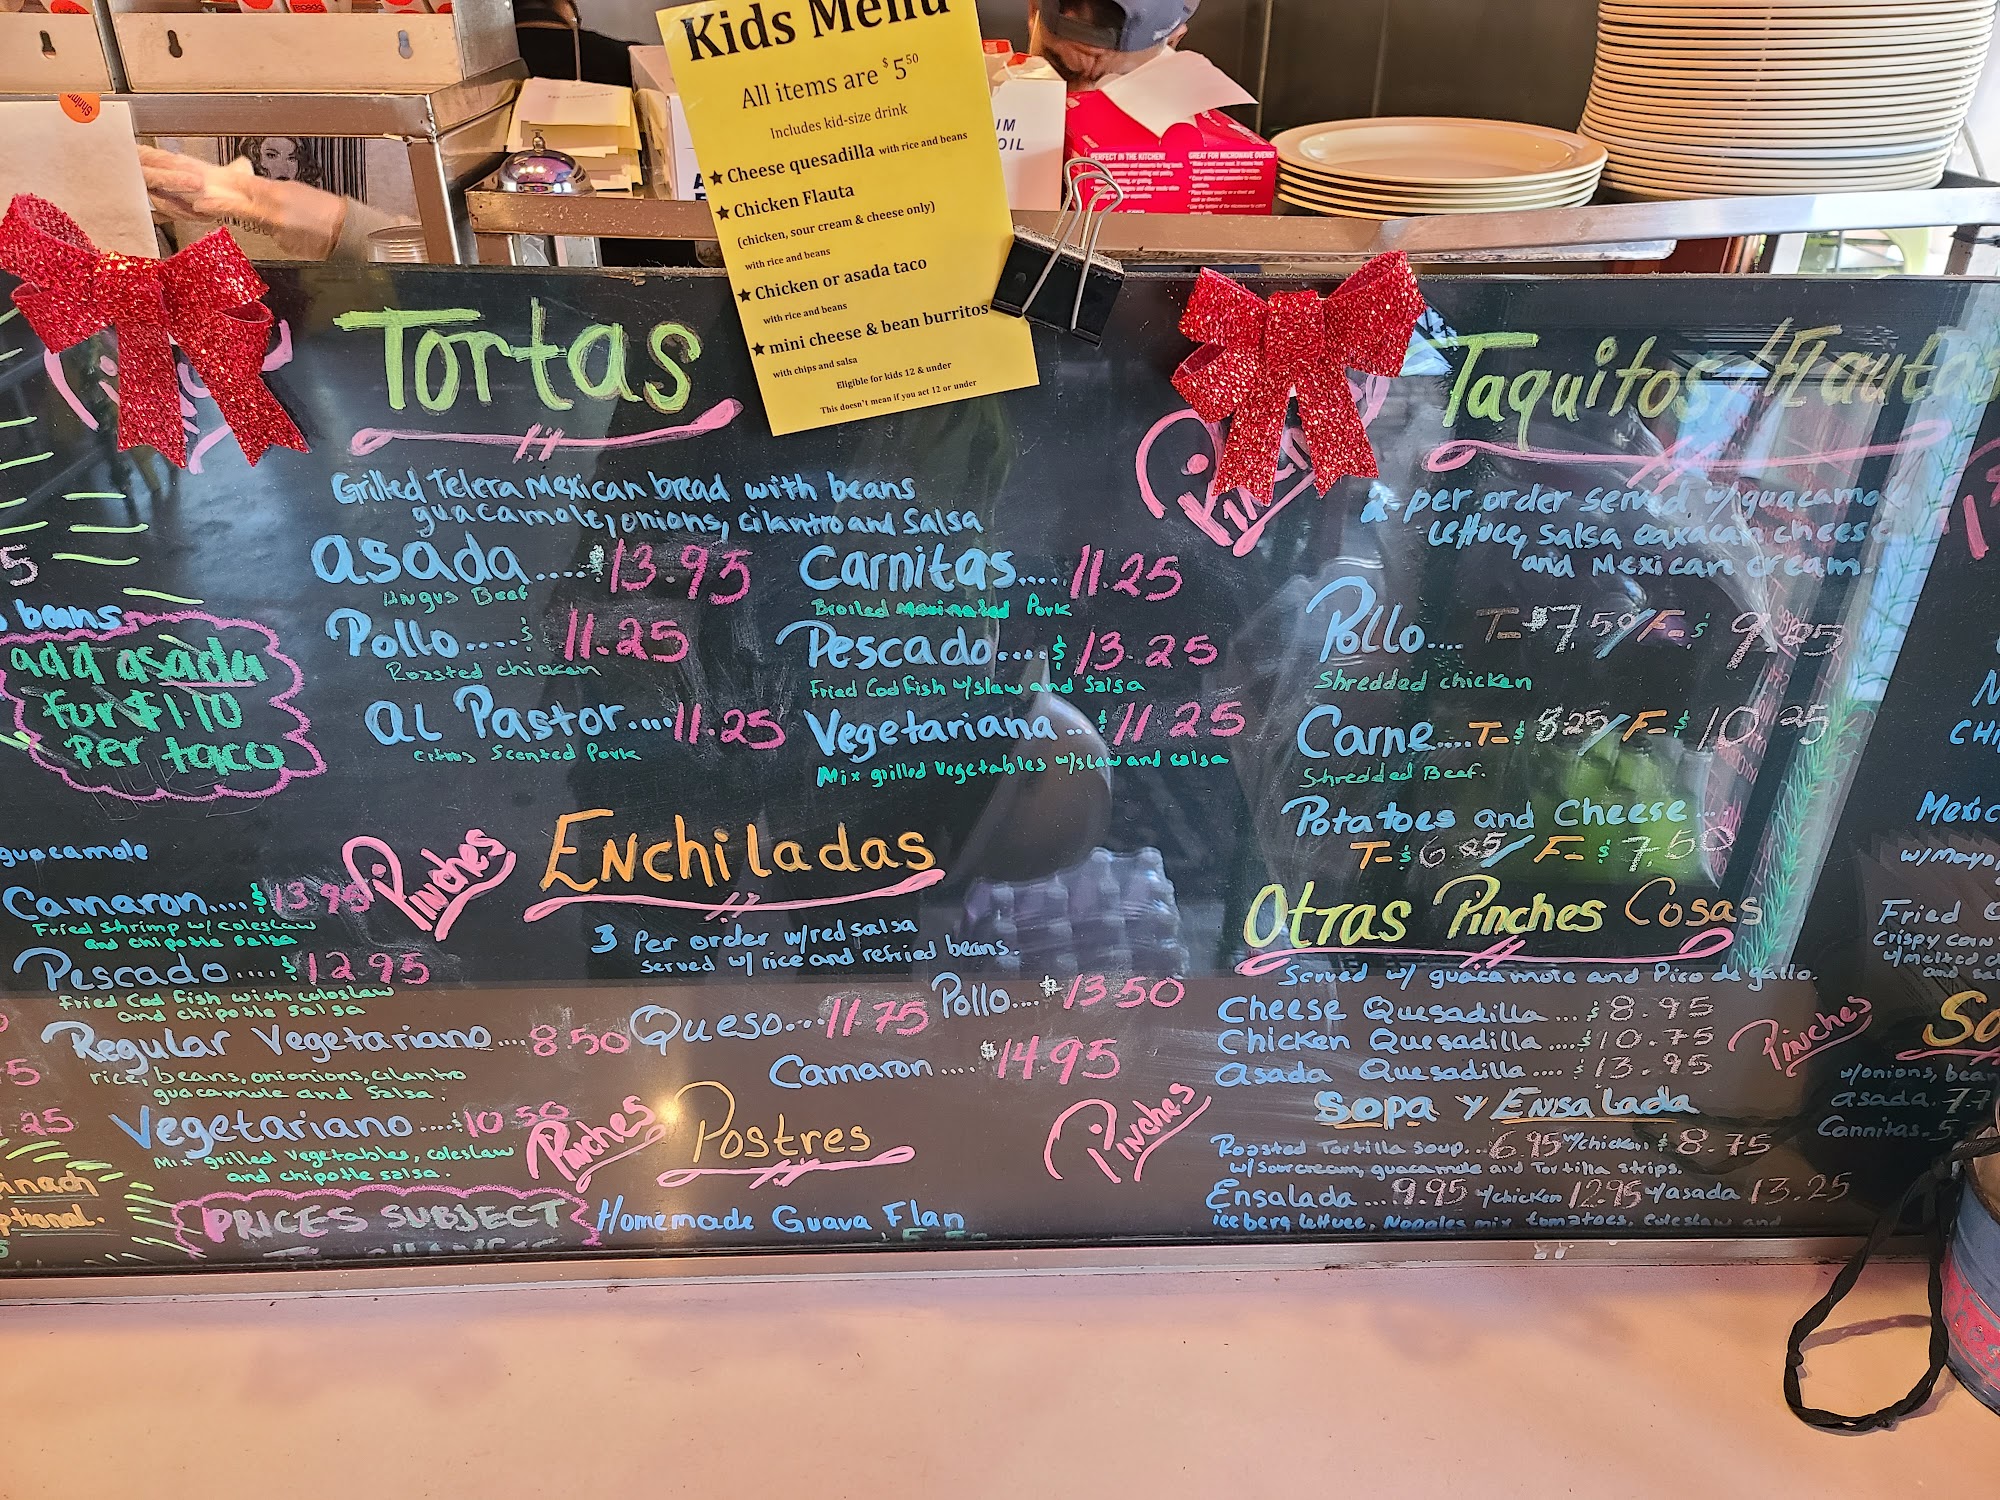 Kids Menu
All items are $5.50
Includes kid-size drink
★ Cheese quesadilla with rice and beans
★ Chicken Flauta
(chicken, sour cream & cheese only)
with rice and beans
★ Chicken or asada taco
with rice and beans
★ mini cheese & bean burritos
with chips and salsa
Eligible for kids 12 & under
This doesn't mean if you act 12 or under
PERFECT IN THE KITCHEN!
GREAT FOR MICROWAVE OVENS!
OIL
beans
add asada
for $1.10
per taco
guacamole
Camaron.... $13.95
Fried shrimp w/ coleslaw
and chipotle salsa
Pescado.... $12.95
Fried Cod Fish with coleslaw
and chipotle salsa
Regular Vegetariano....8.50
rice, beans, onionions, cilantro
guacamole and salsa.
Vegetariano....$10.50
Mix grilled vegetables, coleslaw
and chipotle salsa.
PRICES SUBJECT
Tortas
Grilled Telera Mexican bread with beans
guacamole, onions, cilantro and Salsa
asada....$13.95
Angus Beef
Pollo....$11.25
Roasted chicken
al Pastor....11.25
Citrus Scented Pork
Carnitas....11.25
Broiled marinated Pork
Pescado....$13.25
Fried Cod Fish w/slaw and Salsa
Vegetariana...$11.25
Mix grilled Vegetables w/slaw and salsa
Pinches
Enchiladas
3 Per order w/red salsa
served w/ rice and refried beans.
Queso...11.75
Pollo...$13.50
Camaron....$14.95
Pinches
Postres
Pinches
Homemade Guava Flan
Taquitos/Flautas
2 per order served w/guacamole
lettuce, salsa oaxacan cheese
and Mexican cream.
Pollo.... T=$7.50/F=$9.25
Shredded chicken
Carne....T=$8.25/F=$10.25
Shredded Beef.
Potatoes and Cheese...
T=$6.25/F=$7.50
Otras Pinches Cosas
Served w/ guacamole and Pico de gallo.
Cheese Quesadilla...$8.95
Chicken Quesadilla....$10.75
Asada Quesadilla....$13.95
Pinches
Sopa y Ensalada
Roasted Tortilla soup...6.95 w/chicken $8.75
w/sour cream, guacamole and Tortilla strips.
Ensalada...9.95 w/chicken 12.95 w/asada 13.25
iceberg lettuce, Nopales mix tomatoes, coleslaw and
w/onions, bean
asada.